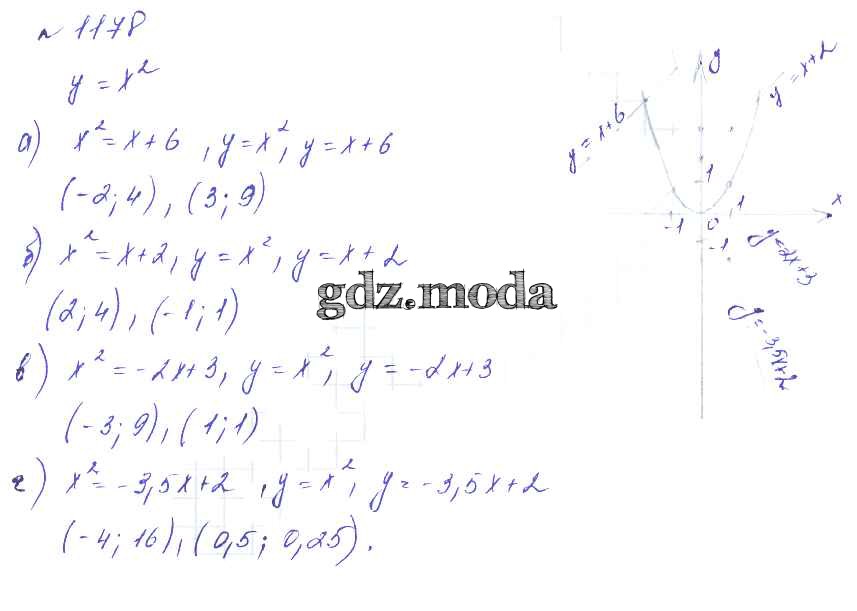 № 1178
y = x²
а) x² = x + 6, y = x², y = x + 6
(-2; 4), (3; 9)
б) x² = x + 2, y = x², y = x + 2
(2; 4), (-1; 1)
в) x² = -2x + 3, y = x², y = -2x + 3
(-3; 9), (1; 1)
г) x² = -3,5x + 2, y = x², y = -3,5x + 2
(-4; 16), (0,5; 0,25).
gdz.moda
y
y = x + 2
y = x + 6
1
x
-1
0
1
-1
y = -2x + 3
y = -3,5x + 2